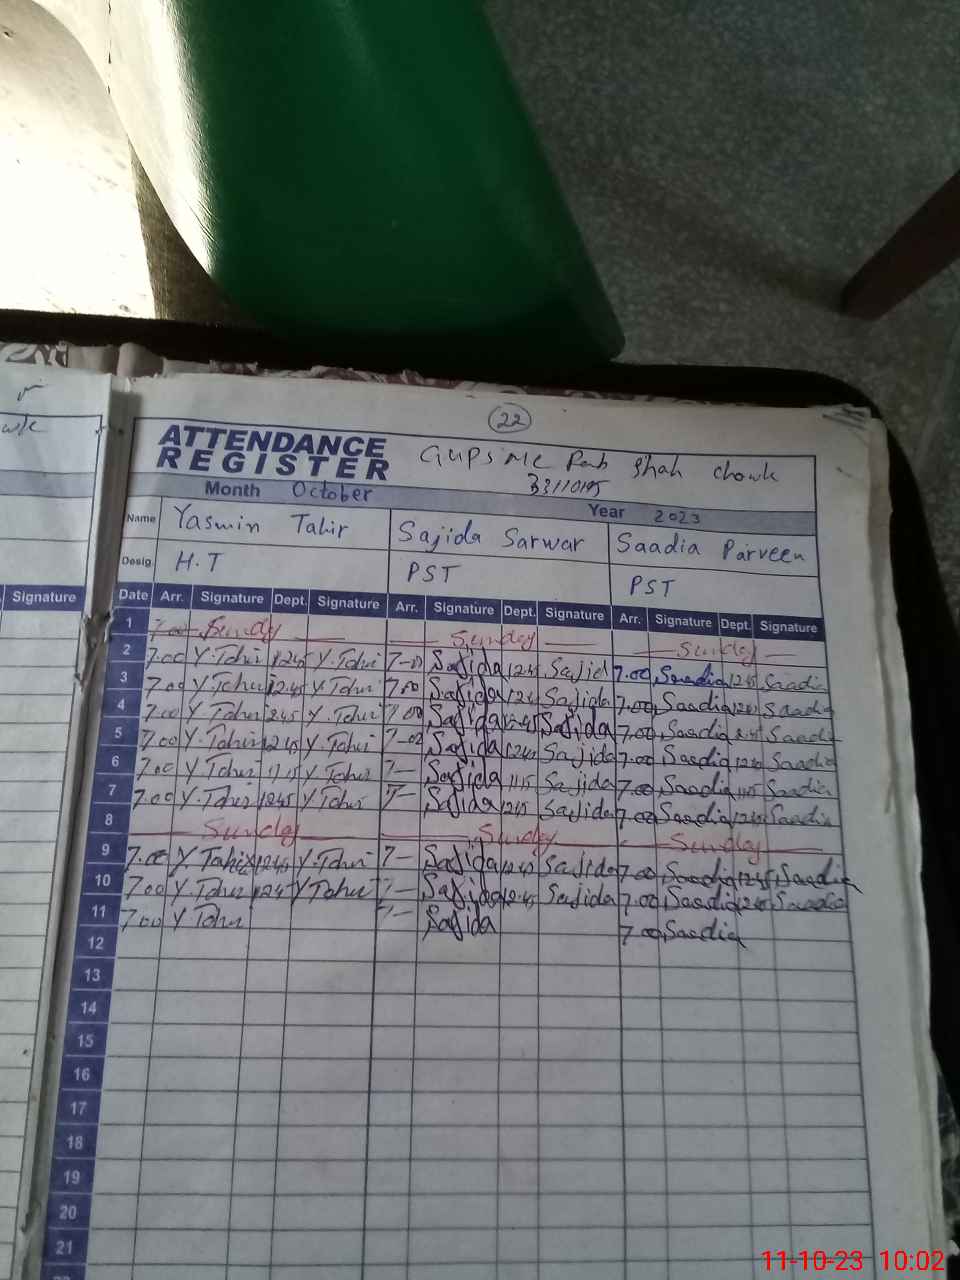 22
ATTENDANCE
REGISTER
GUPS MC Rab Shah Chowk
33110195
Month October Year 2023
Name Yasmin Tahir Sajida Sarwar Saadia Parveen
Desig. H.T PST PST
Signature Date Arr. Signature Dept. Signature Arr. Signature Dept. Signature Arr. Signature Dept. Signature
1 7.00 Sunday Sunday Sunday
2 7.00 Y.Tahir 12.45 Y.Tahir 7-00 Sajida 12.45 Sajid 7.00 Saadia 12.45 Saadia
3 7.00 Y.Tahir 12.45 Y.Tahir 7.00 Sajida 12.4 Sajida 7.00 Saadia 12.45 Saadia
4 7.00 Y.Tahir 12.45 Y.Tahir 7.00 Sajida 12.45 Sajida 7.00 Saadia 12.45 Saadia
5 7.00 Y.Tahir 12.45 Y.Tahir 7-02 Sajida 12.40 Sajida 7.00 Saadia 12.40 Saadia
6 7.00 Y.Tahir 11.15 Y.Tahir 7- Sajida 11.15 Sajida 7.00 Saadia 11.15 Saadia
7 7.00 Y.Tahir 12.45 Y.Tahir 7- Sajida 12.45 Sajida 7.00 Saadia 12.45 Saadia
8 Sunday Sunday Sunday
9 7.00 Y Tahir 12.45 Y.Tahir 7- Sajida 12.45 Sajida 7.00 Saadia 12.45 Saadia
10 7.00 Y.Tahir 12.4 Y Tahir 7- Sajida 12.45 Sajida 7.00 Saadia 12.45 Saadia
11 7.00 Y Tahir 7- Sajida 7.00 Saadia
12
13
14
15
16
17
18
19
20
21
11-10-23 10:02